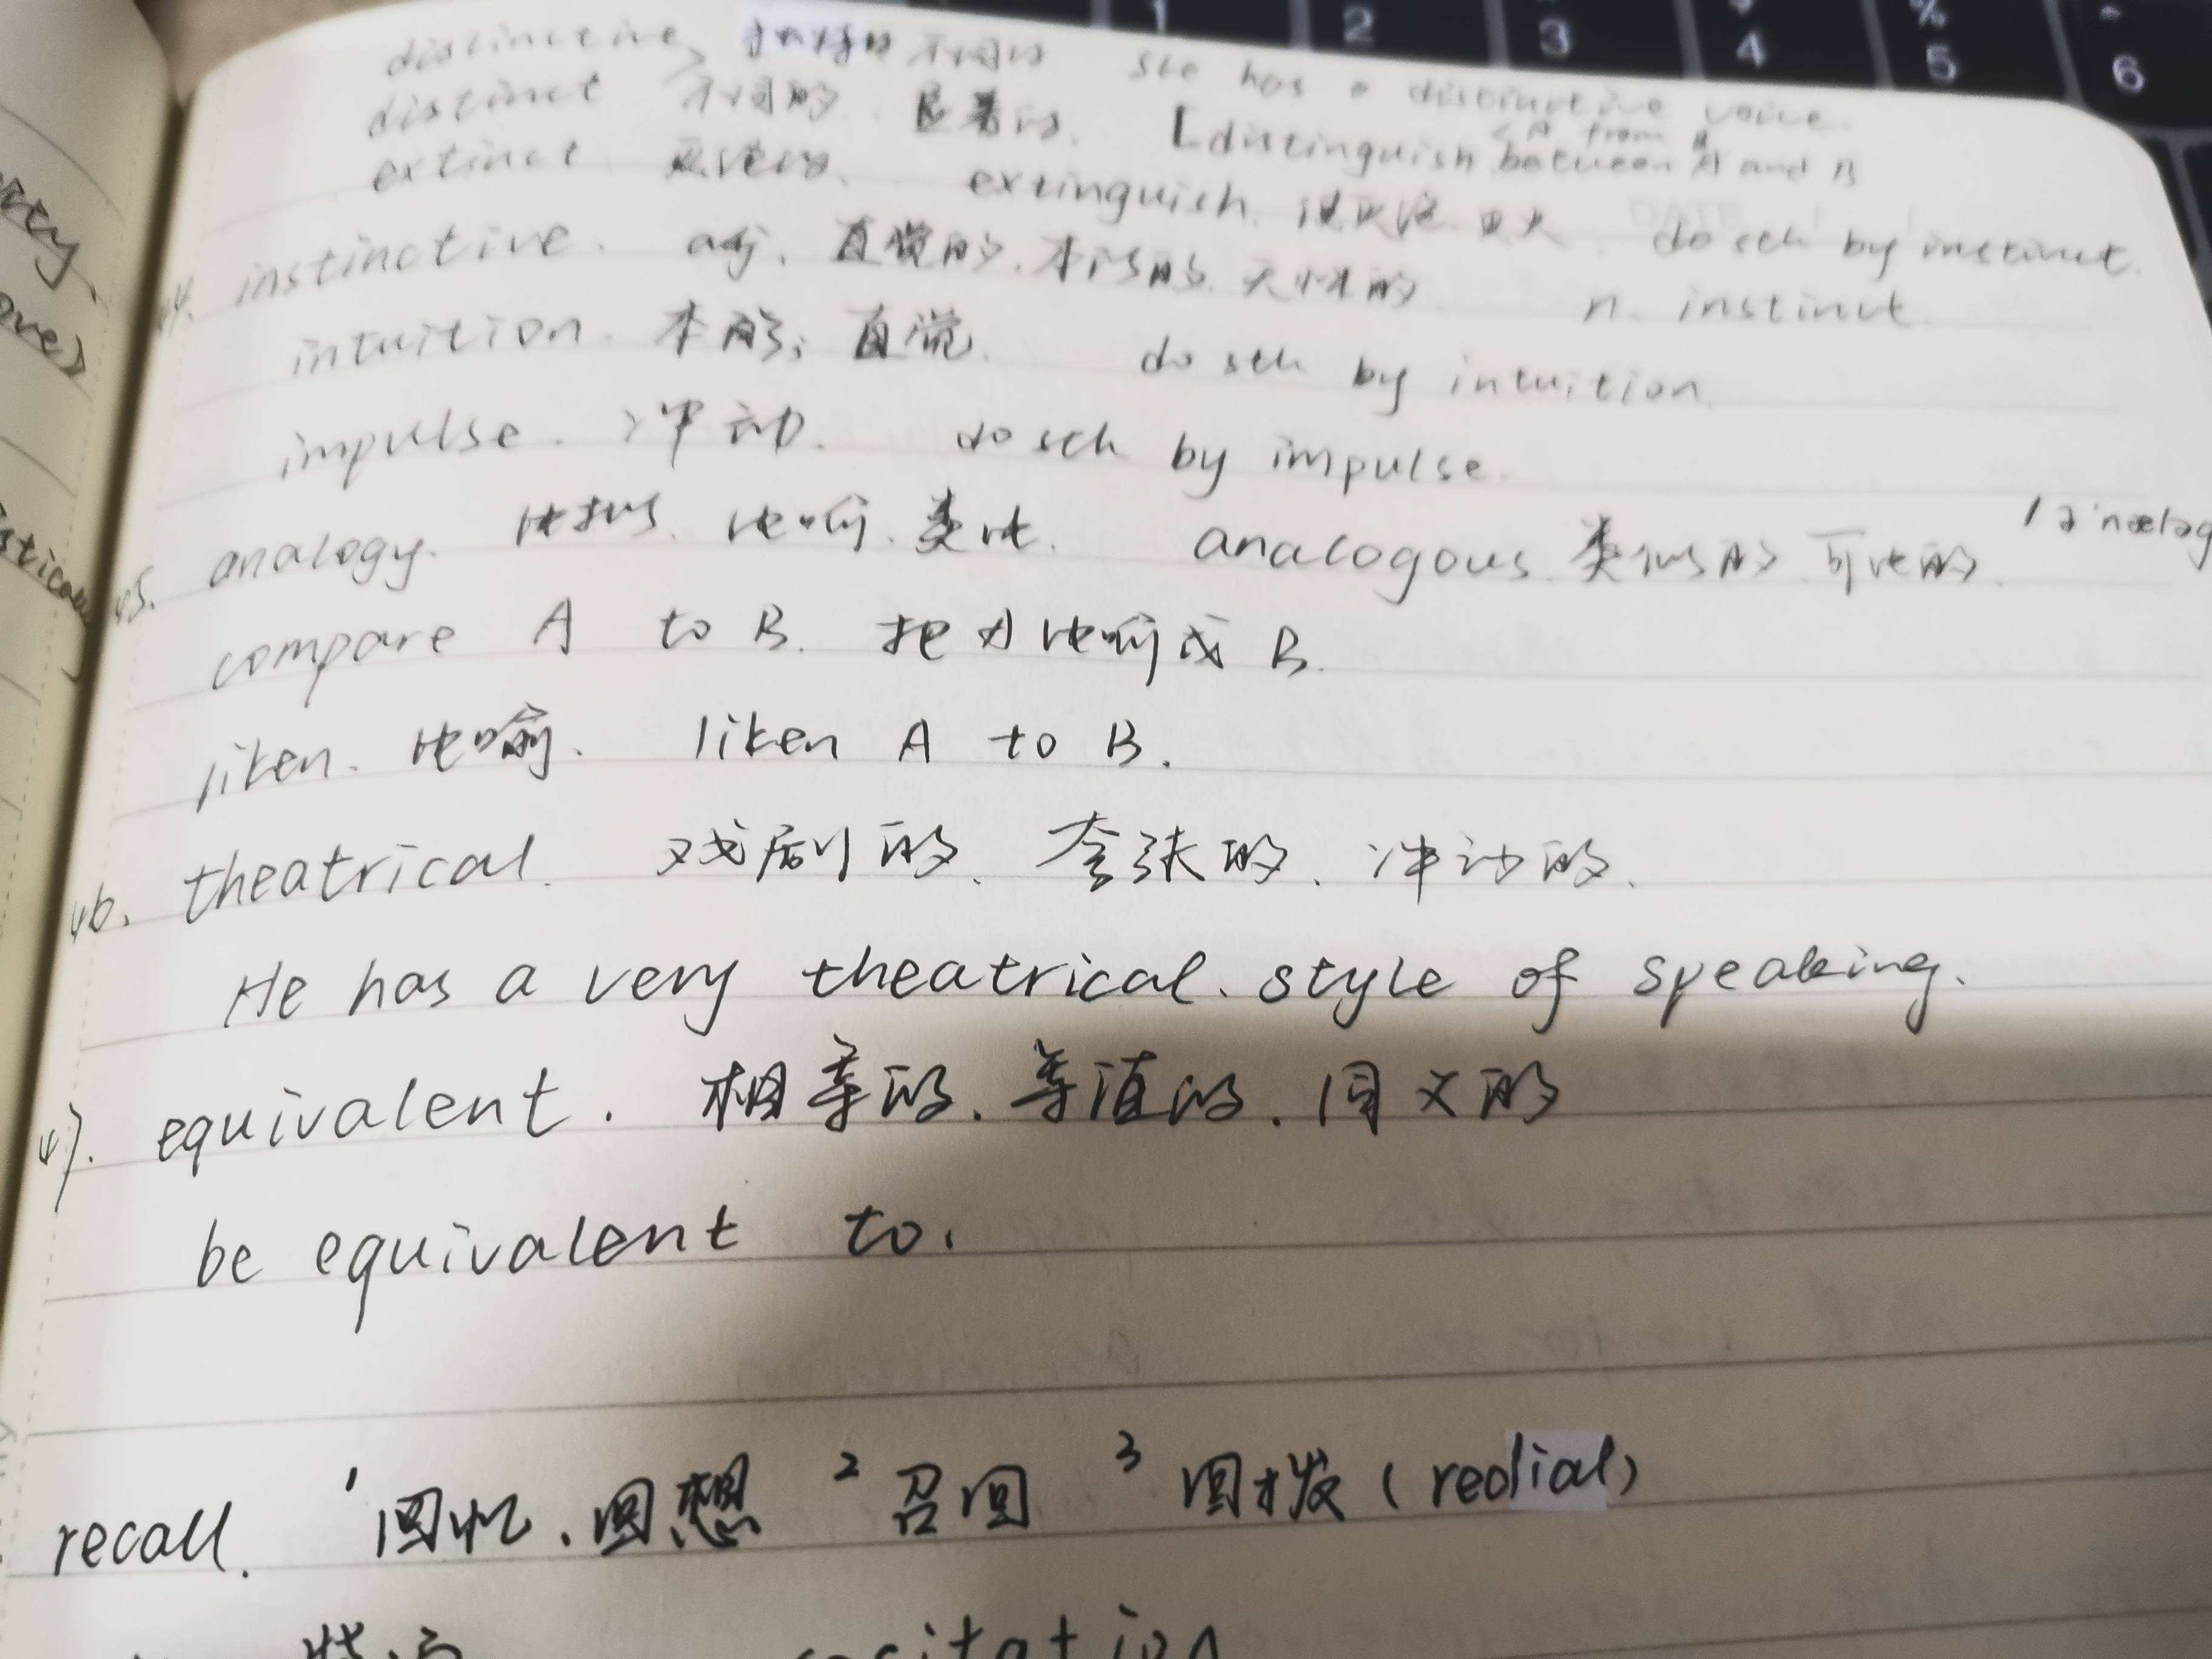 1 2 3 4 % 5 6
distinctive 独特的 不同的 she has a distinctive voice.
distinct 不同的. 显著的. [distinguish < A from B between A and B
extinct 灭绝的. extinguish. 使灭绝 灭火 DATE
44. instinctive. adj. 直觉的. 本能的. 天性的 do sth by instinct.
n. instinct
intuition. 本能; 直觉. do sth by intuition.
impulse. 冲动. do sth by impulse.
45. analogy. 比拟. 比喻. 类比. analogous. 类似的 可比的.
compare A to B. 把A比喻成B.
liken. 比喻. liken A to B.
46. theatrical. 戏剧的. 夸张的. 冲动的.
He has a very theatrical. style of speaking.
47. equivalent. 相等的. 等值的. 同义的
be equivalent to.
recall. 1 回忆. 回想 2 召回 3 回拨 (redial)